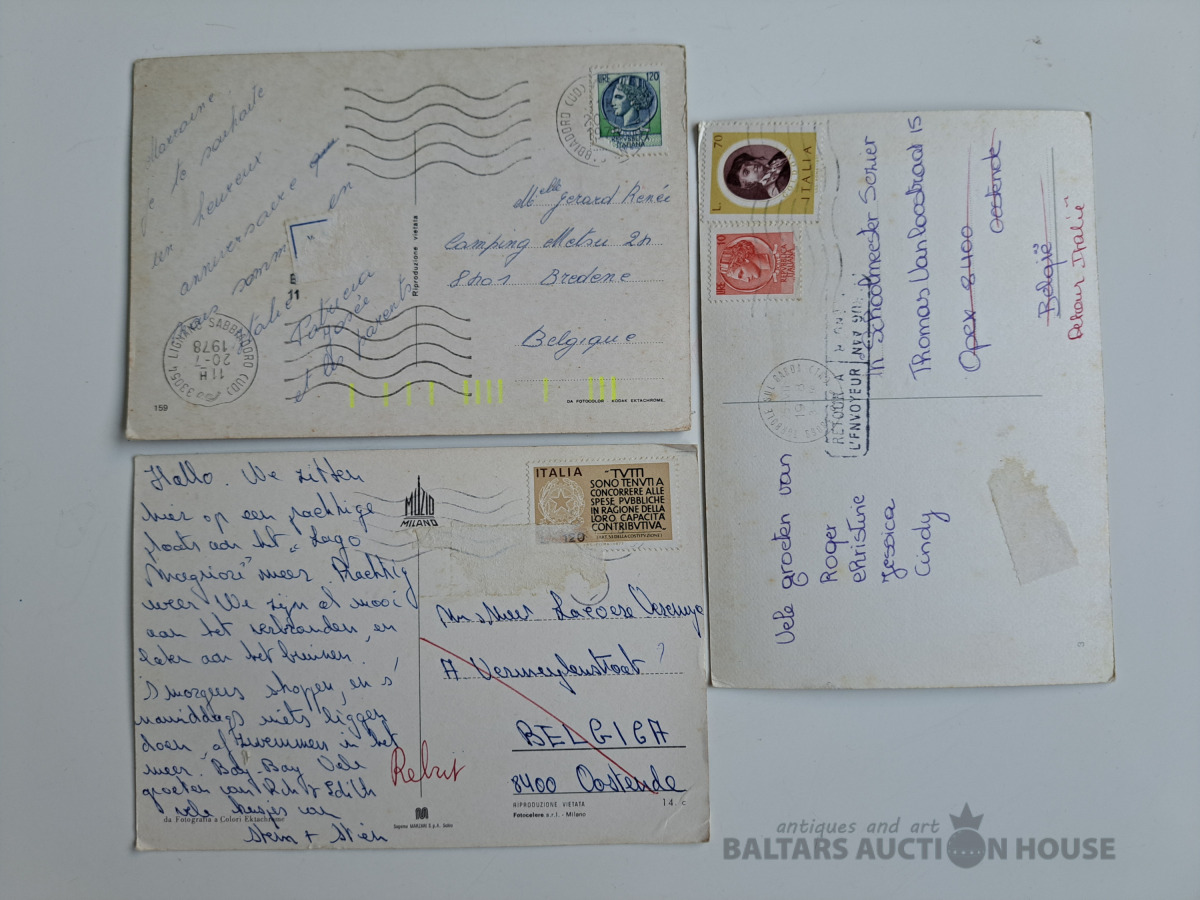 Marraine
je te souhaite
un heureux
anniversaire
nous sommes en
Italie
Patricia
Josée
et les parents
B
11
33054 LIGNANO SABBIADORO (UD)
11H
20-7
1978
159
Riproduzione vietata
LIRE 120
REPUBBLICA
ITALIANA
BBIADORO (UD)
Melle Gerard Renée
Camping Metsu 2n
8401 Bredene
Belgique
DA FOTOCOLOR KODAK EKTACHROME
Hallo. We zitten
hier op een prachtige
plaats aan het "Lago
Maggiore" meer. Prachtig
weer. We zijn al mooi
aan het verbranden, en
later aan het bruinen.
's morgens shoppen, en 's
namiddags niets liggen
doen, of zwemmen in het
meer. Bay-Bay Vele
groeten van Edith
vele kusjes van
Stein + Stien
da Fotografia a Colori Ektachrome
MUZIO
MILANO
ITALIA
"TUTTI
SONO TENUTI A
CONCORRERE ALLE
SPESE PUBBLICHE
IN RAGIONE DELLA
LORO CAPACITÀ
CONTRIBUTIVA"
(ART. 53 DELLA COSTITUZIONE)
Mr & Mevr
A Vermeylenstraat ?
BELGICA
8400 Oostende
Rebut
RIPRODUZIONE VIETATA
Fotocelere s.r.l. - Milano
14. c
L. 70
ITALIA
LIRE 10
ITALIANA
RETOUR A
L'ENVOYEUR
19
In Schoolmeester Senier
Thomas Van Loostraat 15
Opex 8400 Oostende
België
Retour Italië
Vele groeten van
Roger
Christine
Jessica
Cindy
3
antiques and art
BALTARS AUCTION HOUSE